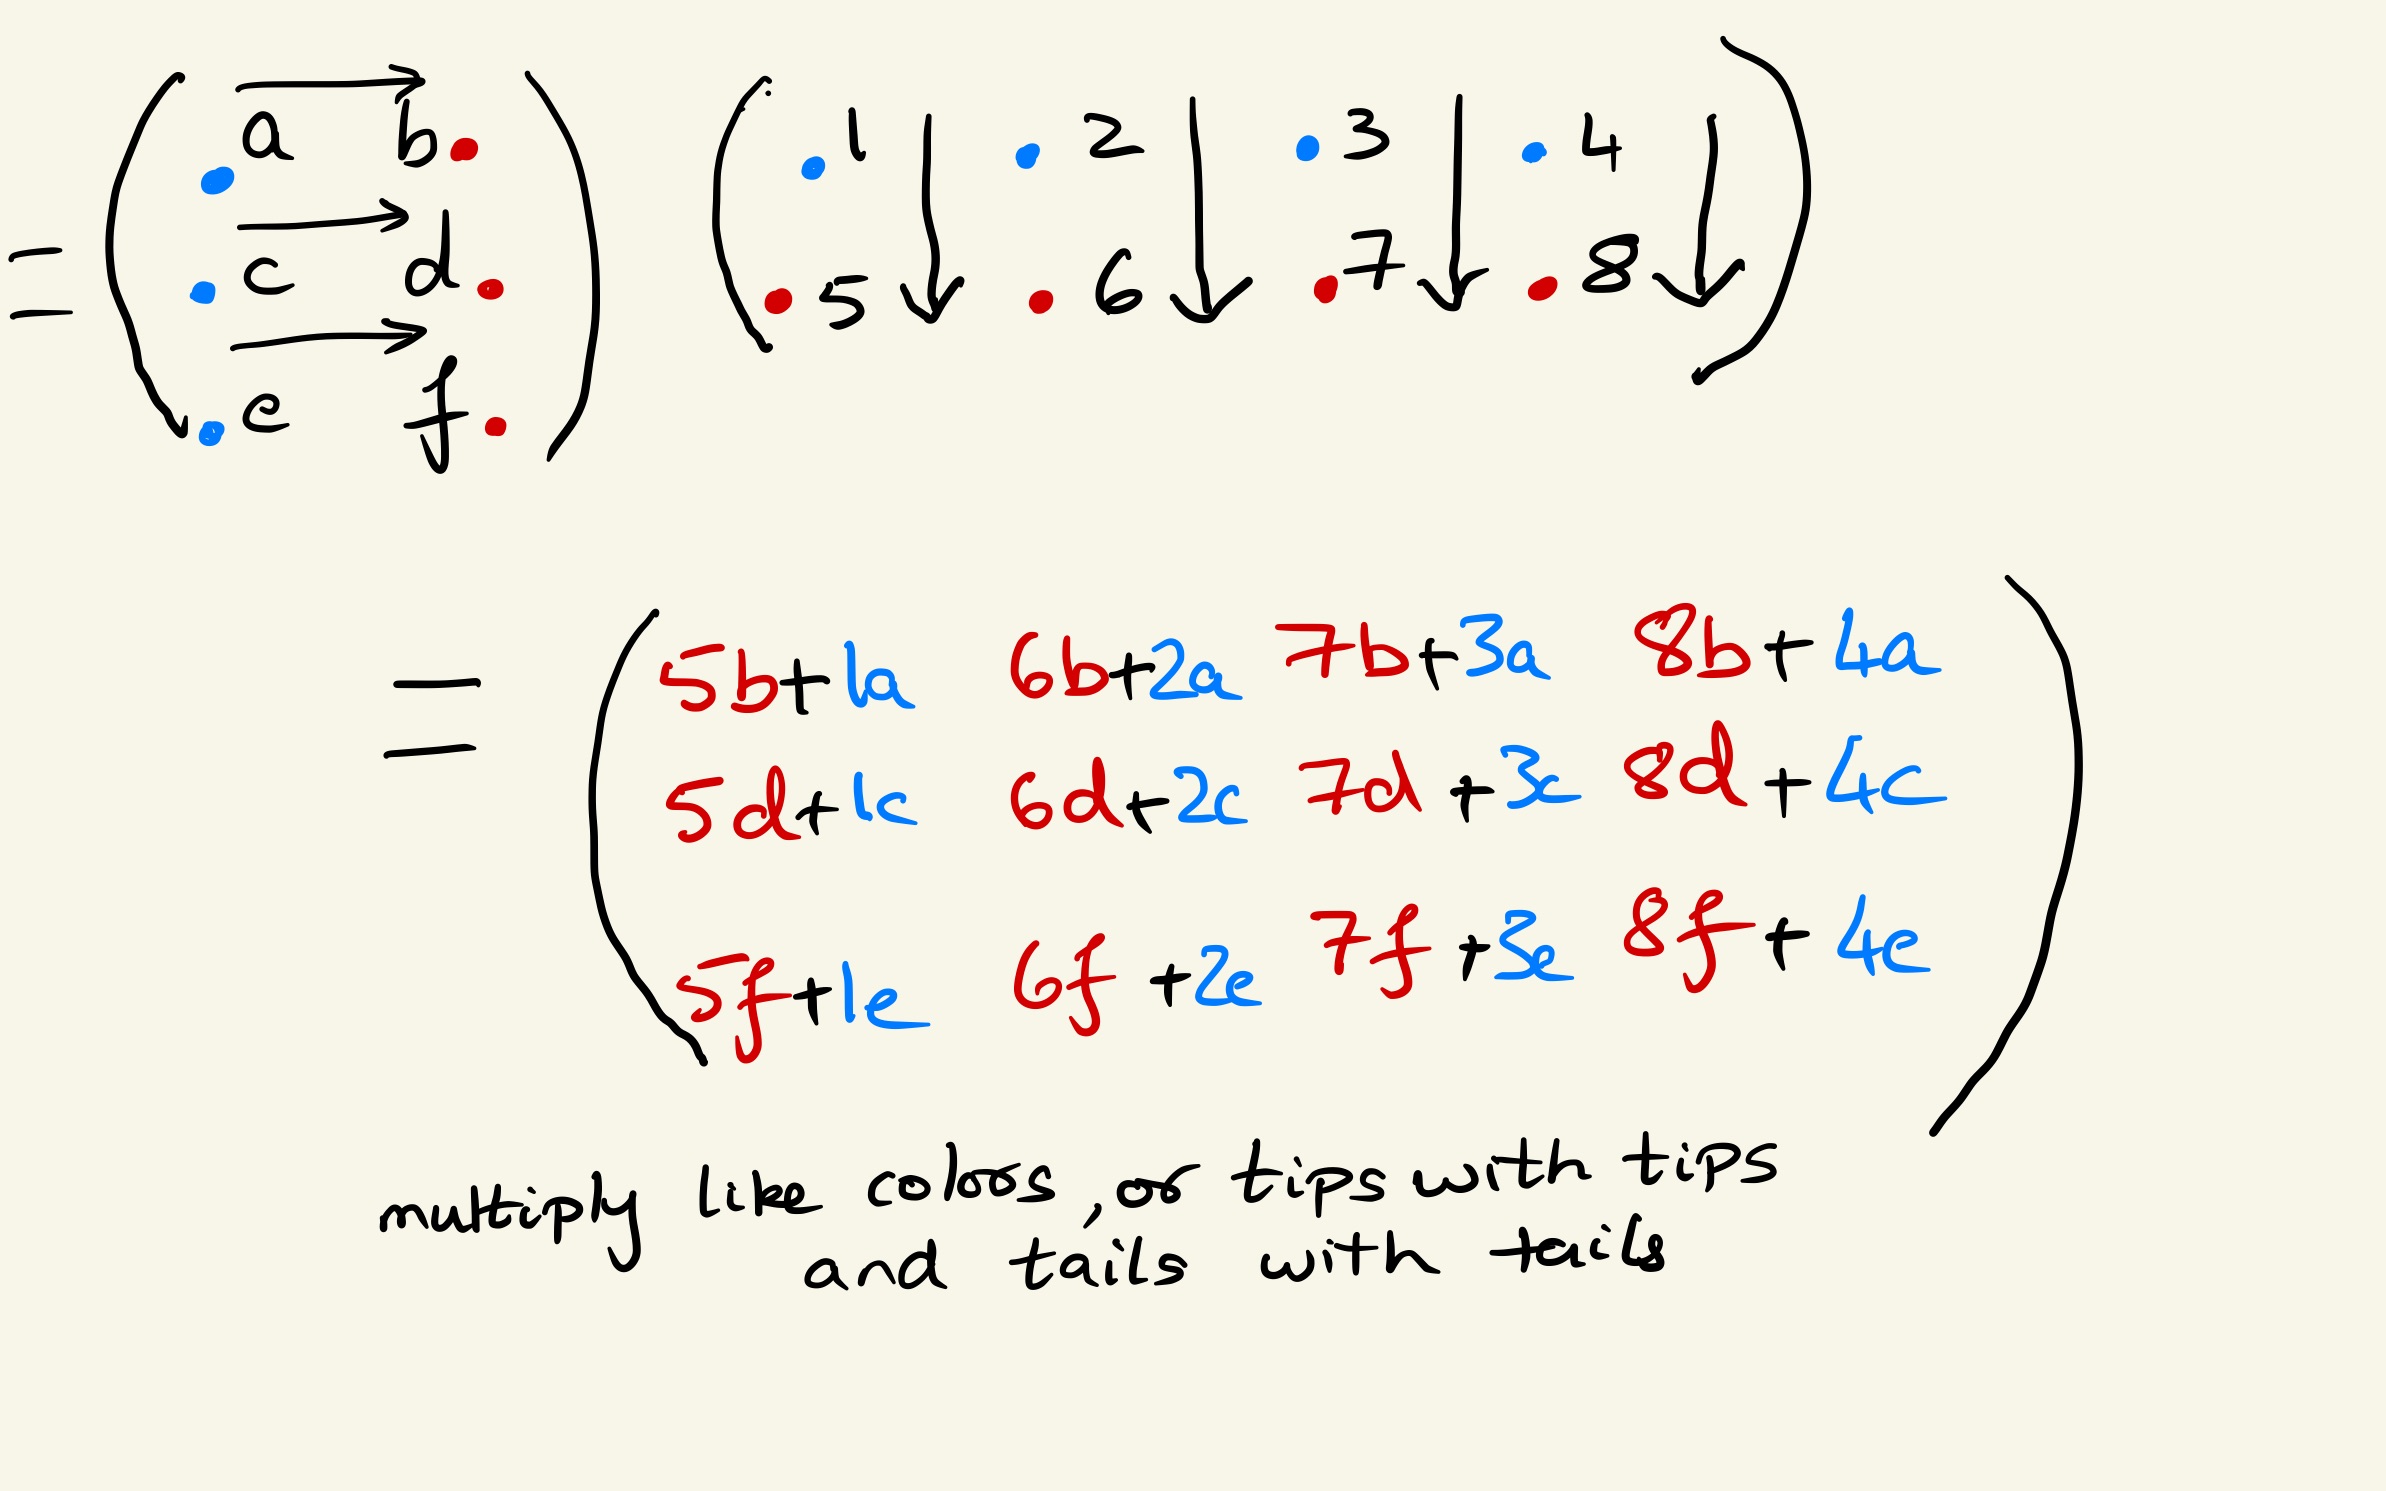 a b 1 2 3 4
= c d 5 6 7 8
e f
5b+1a 6b+2a 7b+3a 8b+4a
= 5d+1c 6d+2c 7d+3c 8d+4c
5f+1e 6f+2e 7f+3e 8f+4e
multiply like colors, or tips with tips
and tails with tails